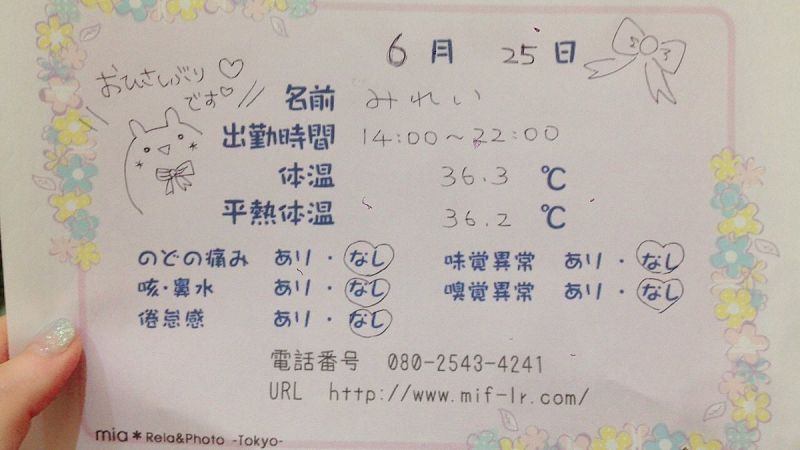 6月 25日
おひさしぶり♡
です♡
名前 みれい
出勤時間 14:00〜22:00
体温 36.3 ℃
平熱体温 36.2 ℃
のどの痛み あり・なし 味覚異常 あり・なし
咳・鼻水 あり・なし 嗅覚異常 あり・なし
倦怠感 あり・なし
電話番号 080-2543-4241
URL http://www.mif-lr.com/
mia＊Rela&Photo -Tokyo-